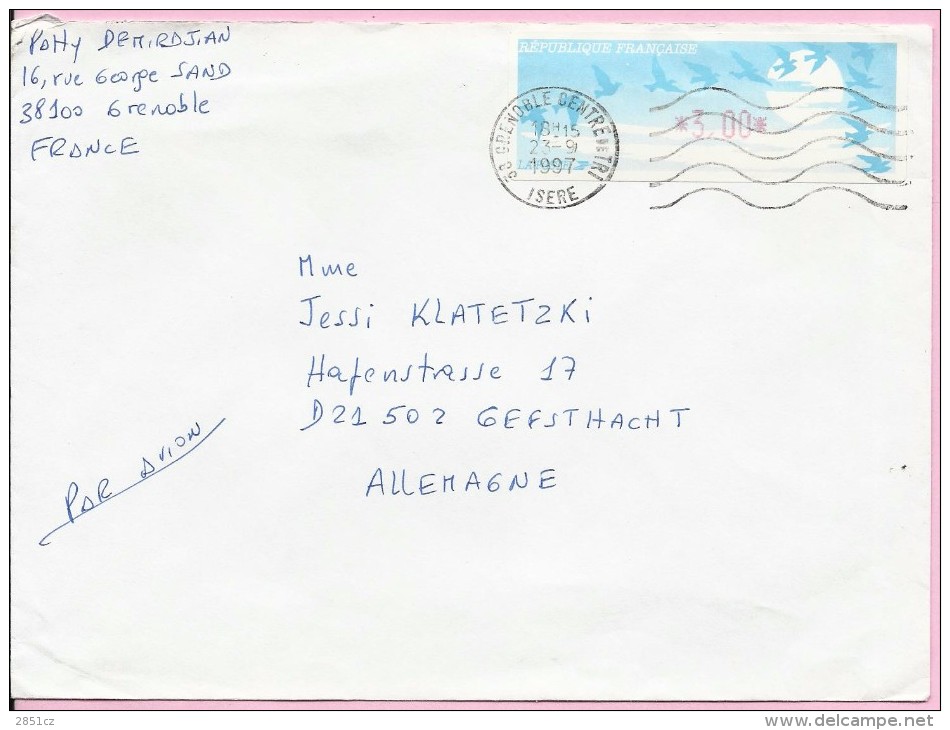 Patty DEMIRDJIAN
16, rue George SAND
38100 Grenoble
FRANCE
RÉPUBLIQUE FRANÇAISE
*3,00*
38 GRENOBLE CENTRE DE TRI
18H15
23-9
1997
ISERE
Mme
Jessi KLATETZKi
Hafenstrasse 17
D21 502 GEESTHACHT
ALLEMAGNE
PAR AVION
2851cz
www.delcampe.net